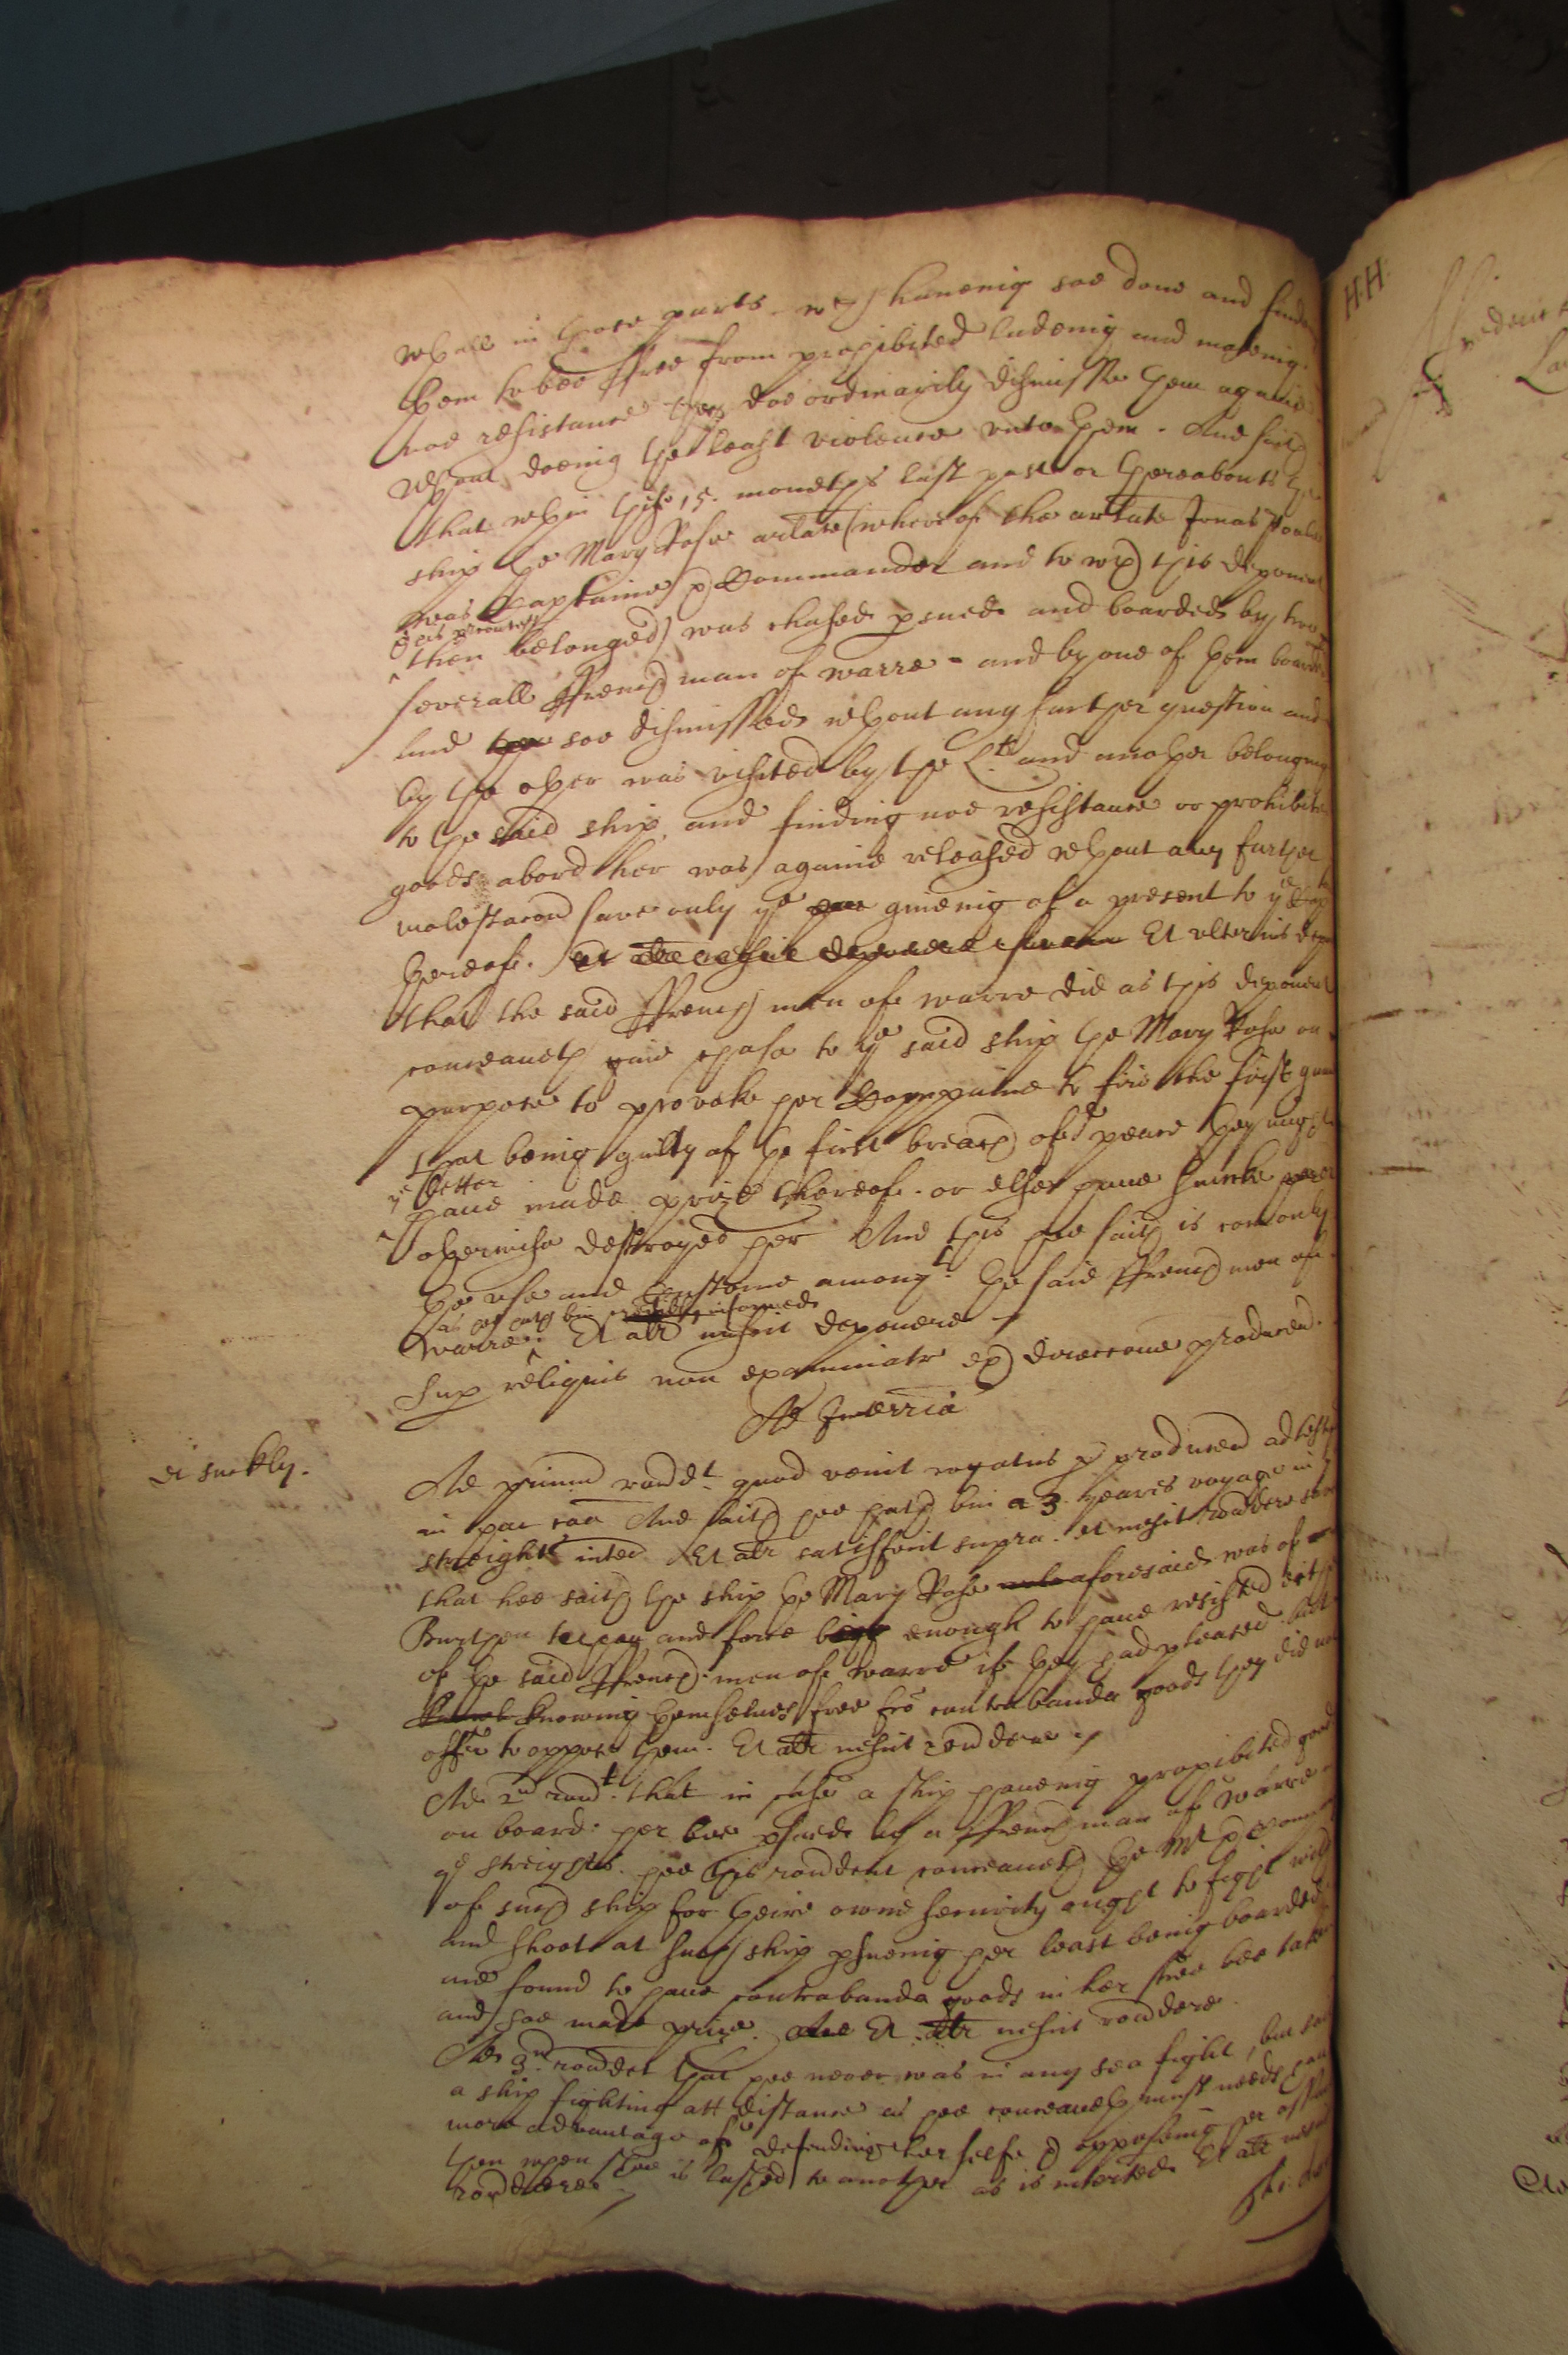 withall in those parts. wch haueing soe done and finding
them to bee ffree from prohibited ladeing and makeing
noe resistance they doe ordinarily dismisse them againe
wthout doeing the least violence unto them. And saith
that wthin theise 15. moneths last past or thereabouts the
ship the Mary Rose arlate (whereof the arlate Jonas Poole
was Captaine & Commander and to wch this deponent
his precontest
then belonged) was chased psued and boarded by two
severall ffrench man of warre - and by one of them boarded
And soe dismissed wthout any further question and
by the other was visited by the Lt. and another belonging
to the said ship, and finding noe resistance or prohibited
goods abord her was againe released wthout any further
molestacon save only ye giueing of a present to ye Capt
thereof. et alr nescit deponere Et ulterius depo
that the said ffrench men of warre did as this deponent
conceaueth giue chase to ye said ship the Mary Rose on
purpose to provoke her Compaine to fire the first gun
that being guilty of the first breach of ye peace they might
ye better
haue made prize thereof. or elses haue suncke or
otherwise destroyed her And this hee saith is comonly
the use and Custome amongst the said ffrench men of
as hee hath bin credibly informed
warre. Et alr nescit deponere
Sup reliquis non examinatr ex direccone producen.
Ad Interria
et suckly.
Ad primu rondet. quod venit rogatus p producen ad testi
in hac caa And saith hee hath bin a 3. yeares voyage in
streights inted Et alr satisfecit supra. et nescit rondere sav
that hee saith the ship the Mary Rose aforesaid was of
Burthen and force enough to haue resisted eithr
of the said ffrench men of warre if they had pleased. but
knowing themselues free fro contrabanda goods they did not
offer to oppose them. Et alr nescit rondere
Ad 2m rondt. that in case a ship haueing prohibited goods
on board her bee psued by a ffrench man of warre in
ye streights. hee this rondent conceaueth the Mr & Company
of such ship for theire owne security ought to fight with
and shoot at such ship psueing her least being boarded
and found to haue contrabanda goods in her shee bee taken
and soe made prize. Et alr nescit rondere.
Ad 3m rondet that hee never was in any sea fight, but saith
a ship fighting att distance as hee conceaueth must needs haue
more advantage of defending her selfe & opposeing her
then when shee is lashed to another as is interted Et alr nescit
rondere